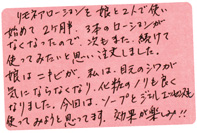 リセネアローションを娘と2人で使い
始めて2ヶ月半、3本のローションが
なくなったので、次もまた続けて
使ってみたいと思い注文しました。
娘はニキビが、私は、目元のシワが
気にならなくなり、化粧のノリも良く
なりました。今回は、ソープとジェルエ
使ってみようと思ってます。効果が楽しみ!!